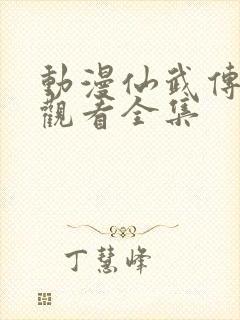 動漫仙武傳
觀看全集
丁慧峰